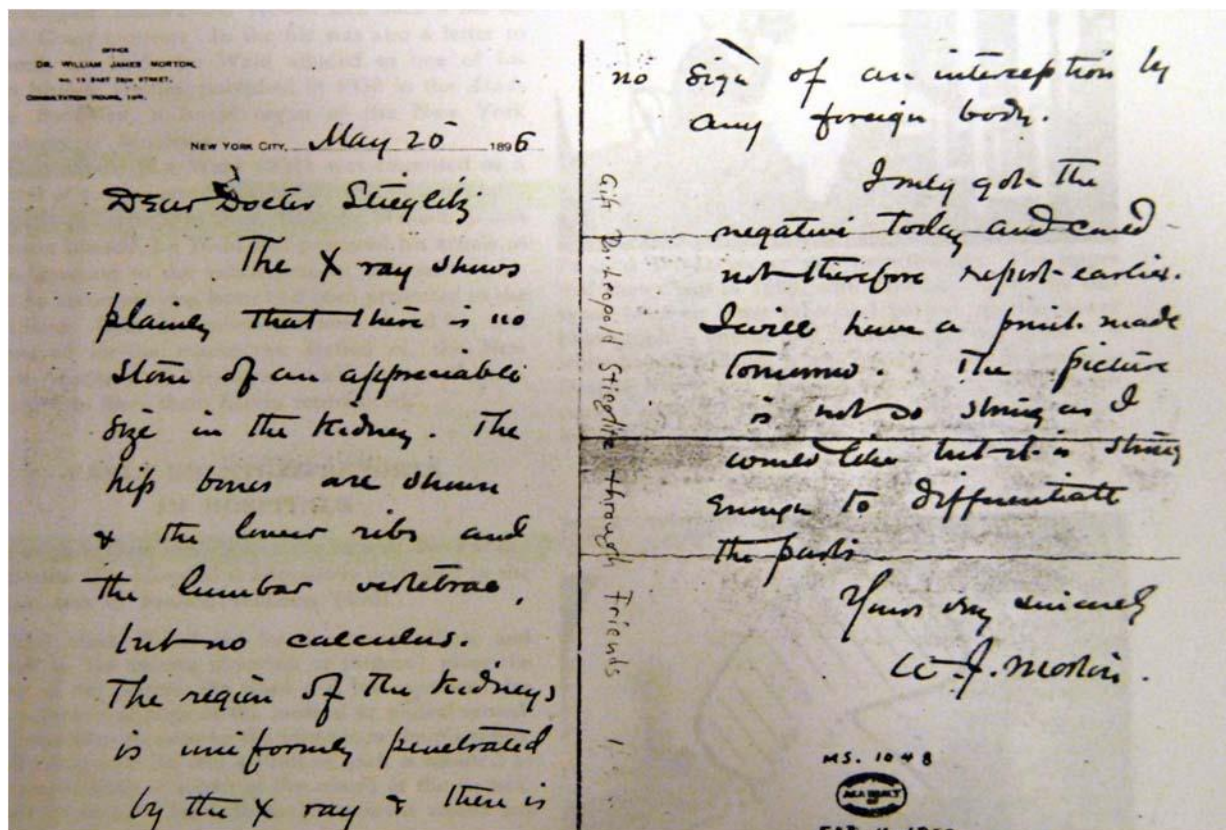 OFFICE
DR. WILLIAM JAMES MORTON,
NO. 19 EAST 28TH STREET,
CONSULTATION HOURS,
NEW YORK CITY, May 25 1896
Dear Doctor Stieglitz
The X ray shows
plainly that there is no
stone of an appreciable
size in the kidney. The
hip bones are shown
& the lower ribs and
the lumbar vertebrae,
but no calculus.
The region of the kidneys
is uniformly penetrated
by the X ray & there is
no sign of an interception by
any foreign body.
I only got the
negative today and could
not therefore report earlier.
I will have a print made
tomorrow. The picture
is not so strong as I
would like but it is strong
enough to differentiate
the parts
Yours very sincerely
W. J. Morton.
Gift Dr. Leopold Stieglitz through Friends
MS. 1048